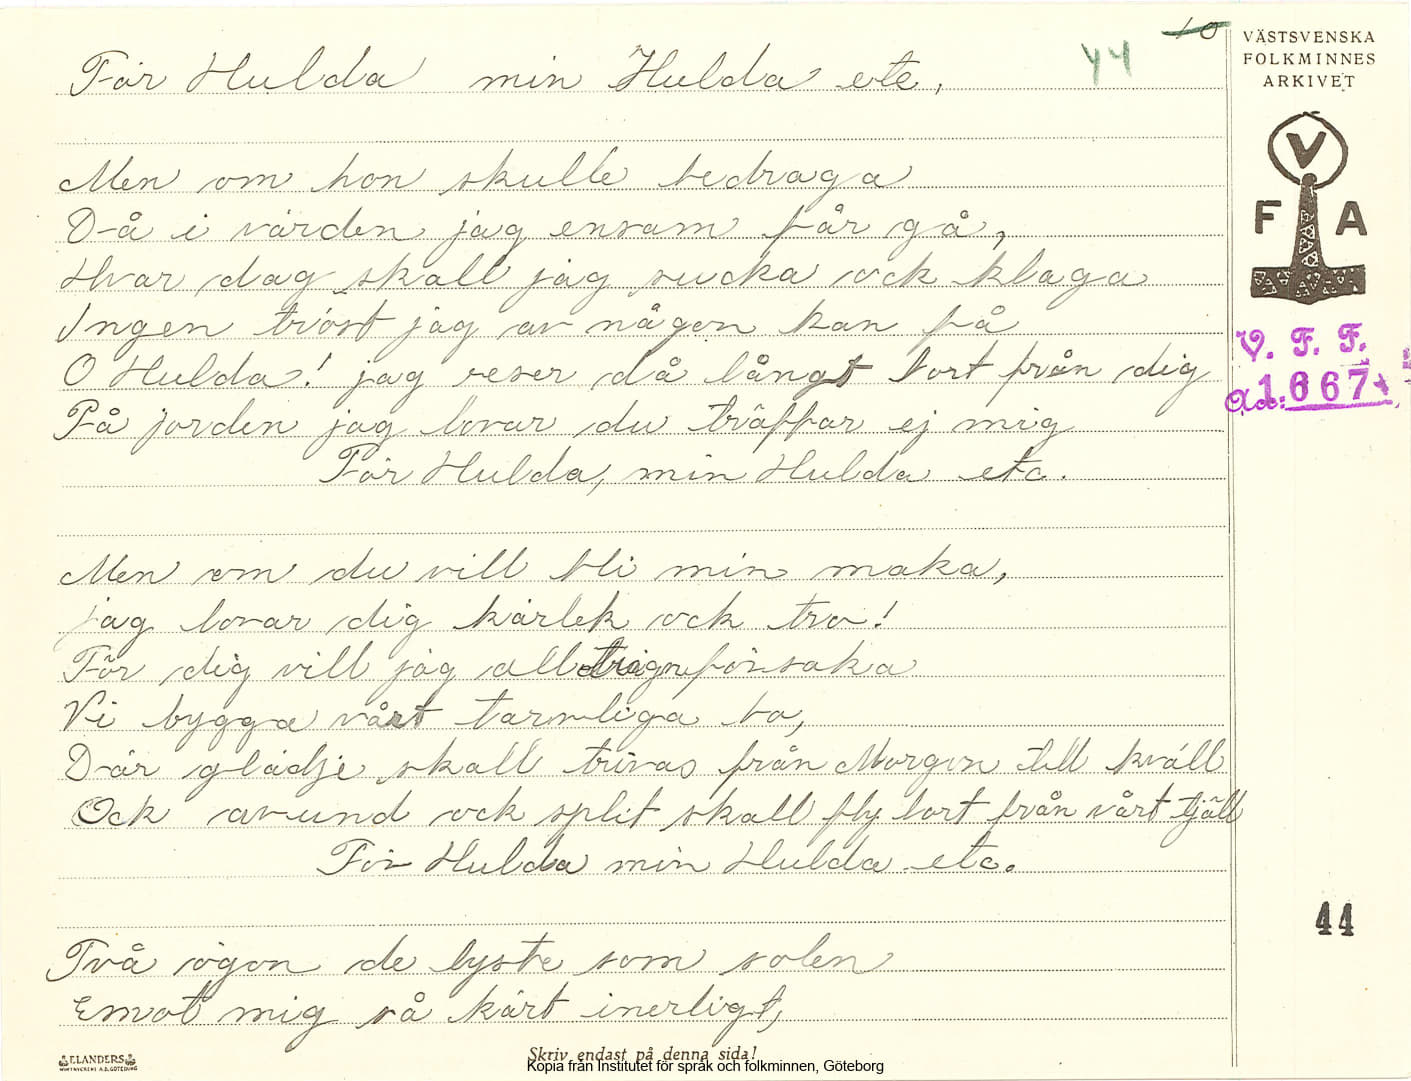 10
44
VÄSTSVENSKA
FOLKMINNES
ARKIVET
V
F A
V. F. F.
1667
För Hulda min Hulda etc,
Men om hon skulle bedraga
Då i värden jag ensam får gå,
Hvar dag skall jag sucka ock klaga
Ingen tröst jag av någon kan få
O Hulda! jag reser då långt bort från dig
På jorden jag lovar du träffar ej mig
För Hulda, min Hulda etc.
Men om du vill bli min maka,
jag lovar dig kärlek ock tro!
För dig vill jag allting försaka
Vi bygga vårt tarvliga bo,
Där glädje skall trivas från Morgon till kväll
Ock avund ock split skall fly bort från vårt tjäll
För Hulda min Hulda etc.
44
Två ögon de lyste som solen
Emot mig så kärt inerligt,
ELANDERS
Skriv endast på denna sida!
Kopia från Institutet för språk och folkminnen, Göteborg